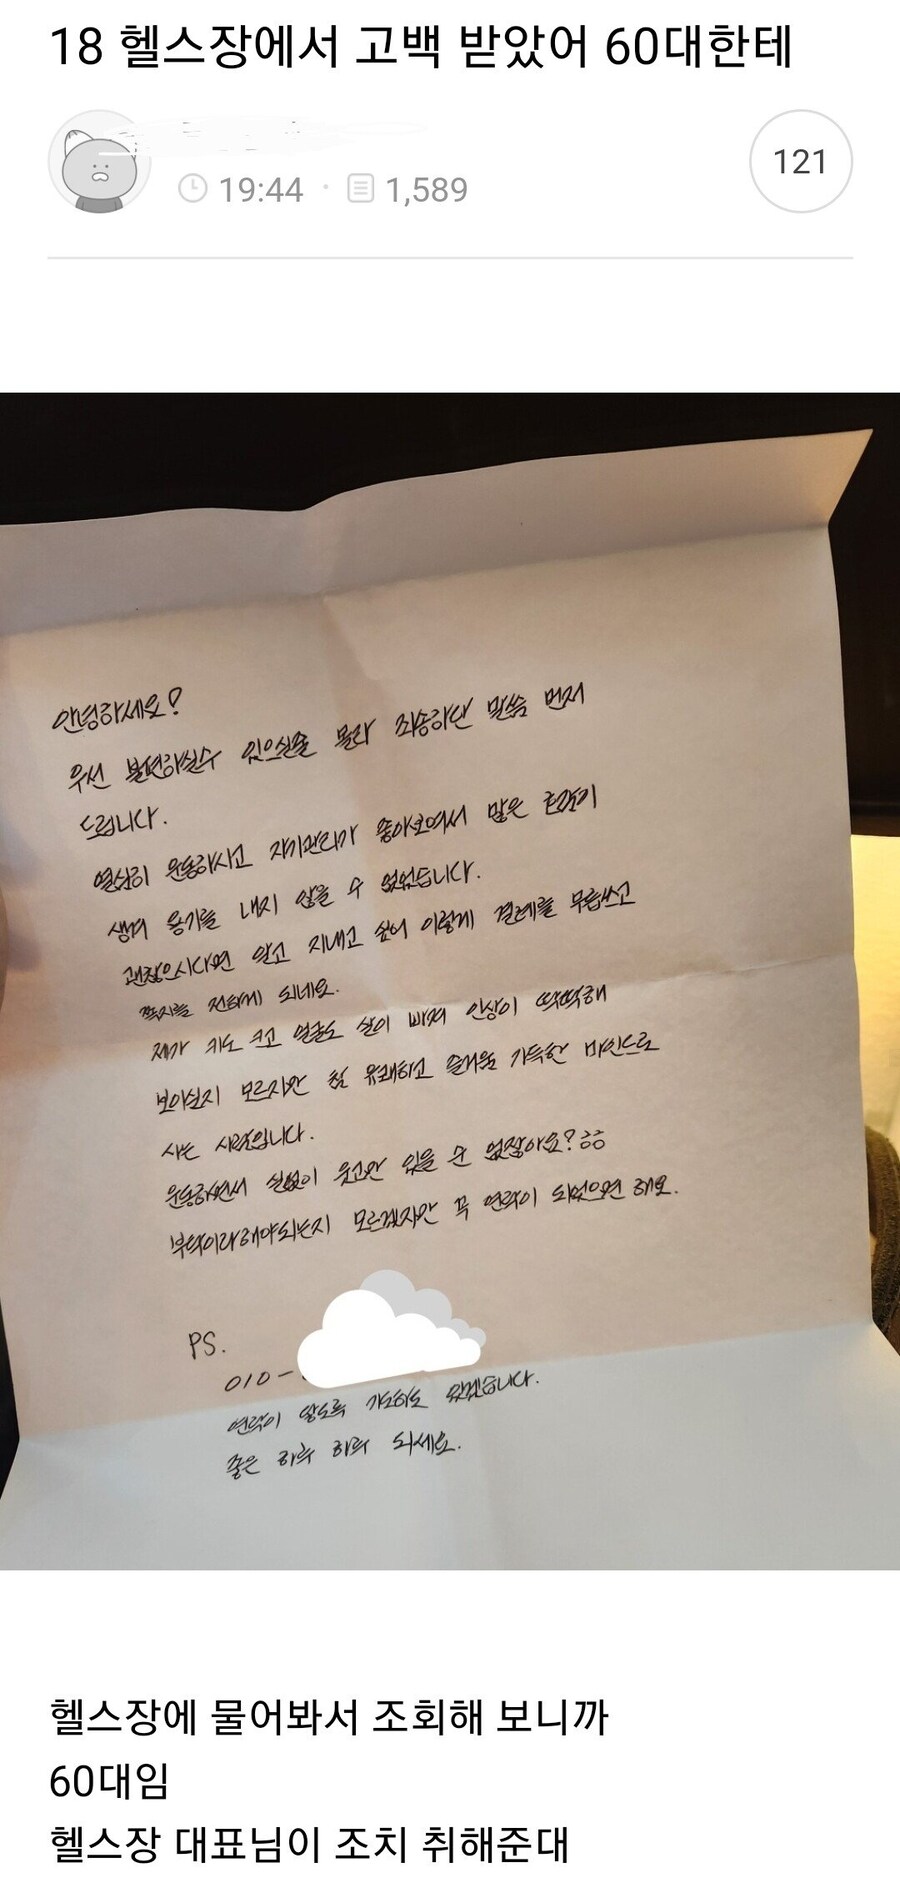 18 헬스장에서 고백 받았어 60대한테
19:44 · 1,589
121
안녕하세요?
우선 불편하실수 있으실줄 몰라 죄송하단 말씀 먼저
드립니다.
열심히 운동하시고 자기관리가 좋아보여서 많은 호감이
생겨 용기를 내지 않을 수 없었습니다.
괜찮으시다면 알고 지내고 싶어 이렇게 결례를 무릅쓰고
쪽지를 전하게 되네요.
제가 키도 크고 얼굴도 살이 빠져 인상이 딱딱해
보이실지 모르지만 참 유쾌하고 즐거움 가득한 마인드로
사는 사람입니다.
운동하면서 실없이 웃고만 있을 순 없잖아요? ㅎㅎ
부탁이라해야되는지 모르겠지만 꼭 연락이 되었으면 해요.
PS.
010-
연락이 않도록 기도하도 있겠습니다.
좋은 하루 하루 되세요.
헬스장에 물어봐서 조회해 보니까
60대임
헬스장 대표님이 조치 취해준대